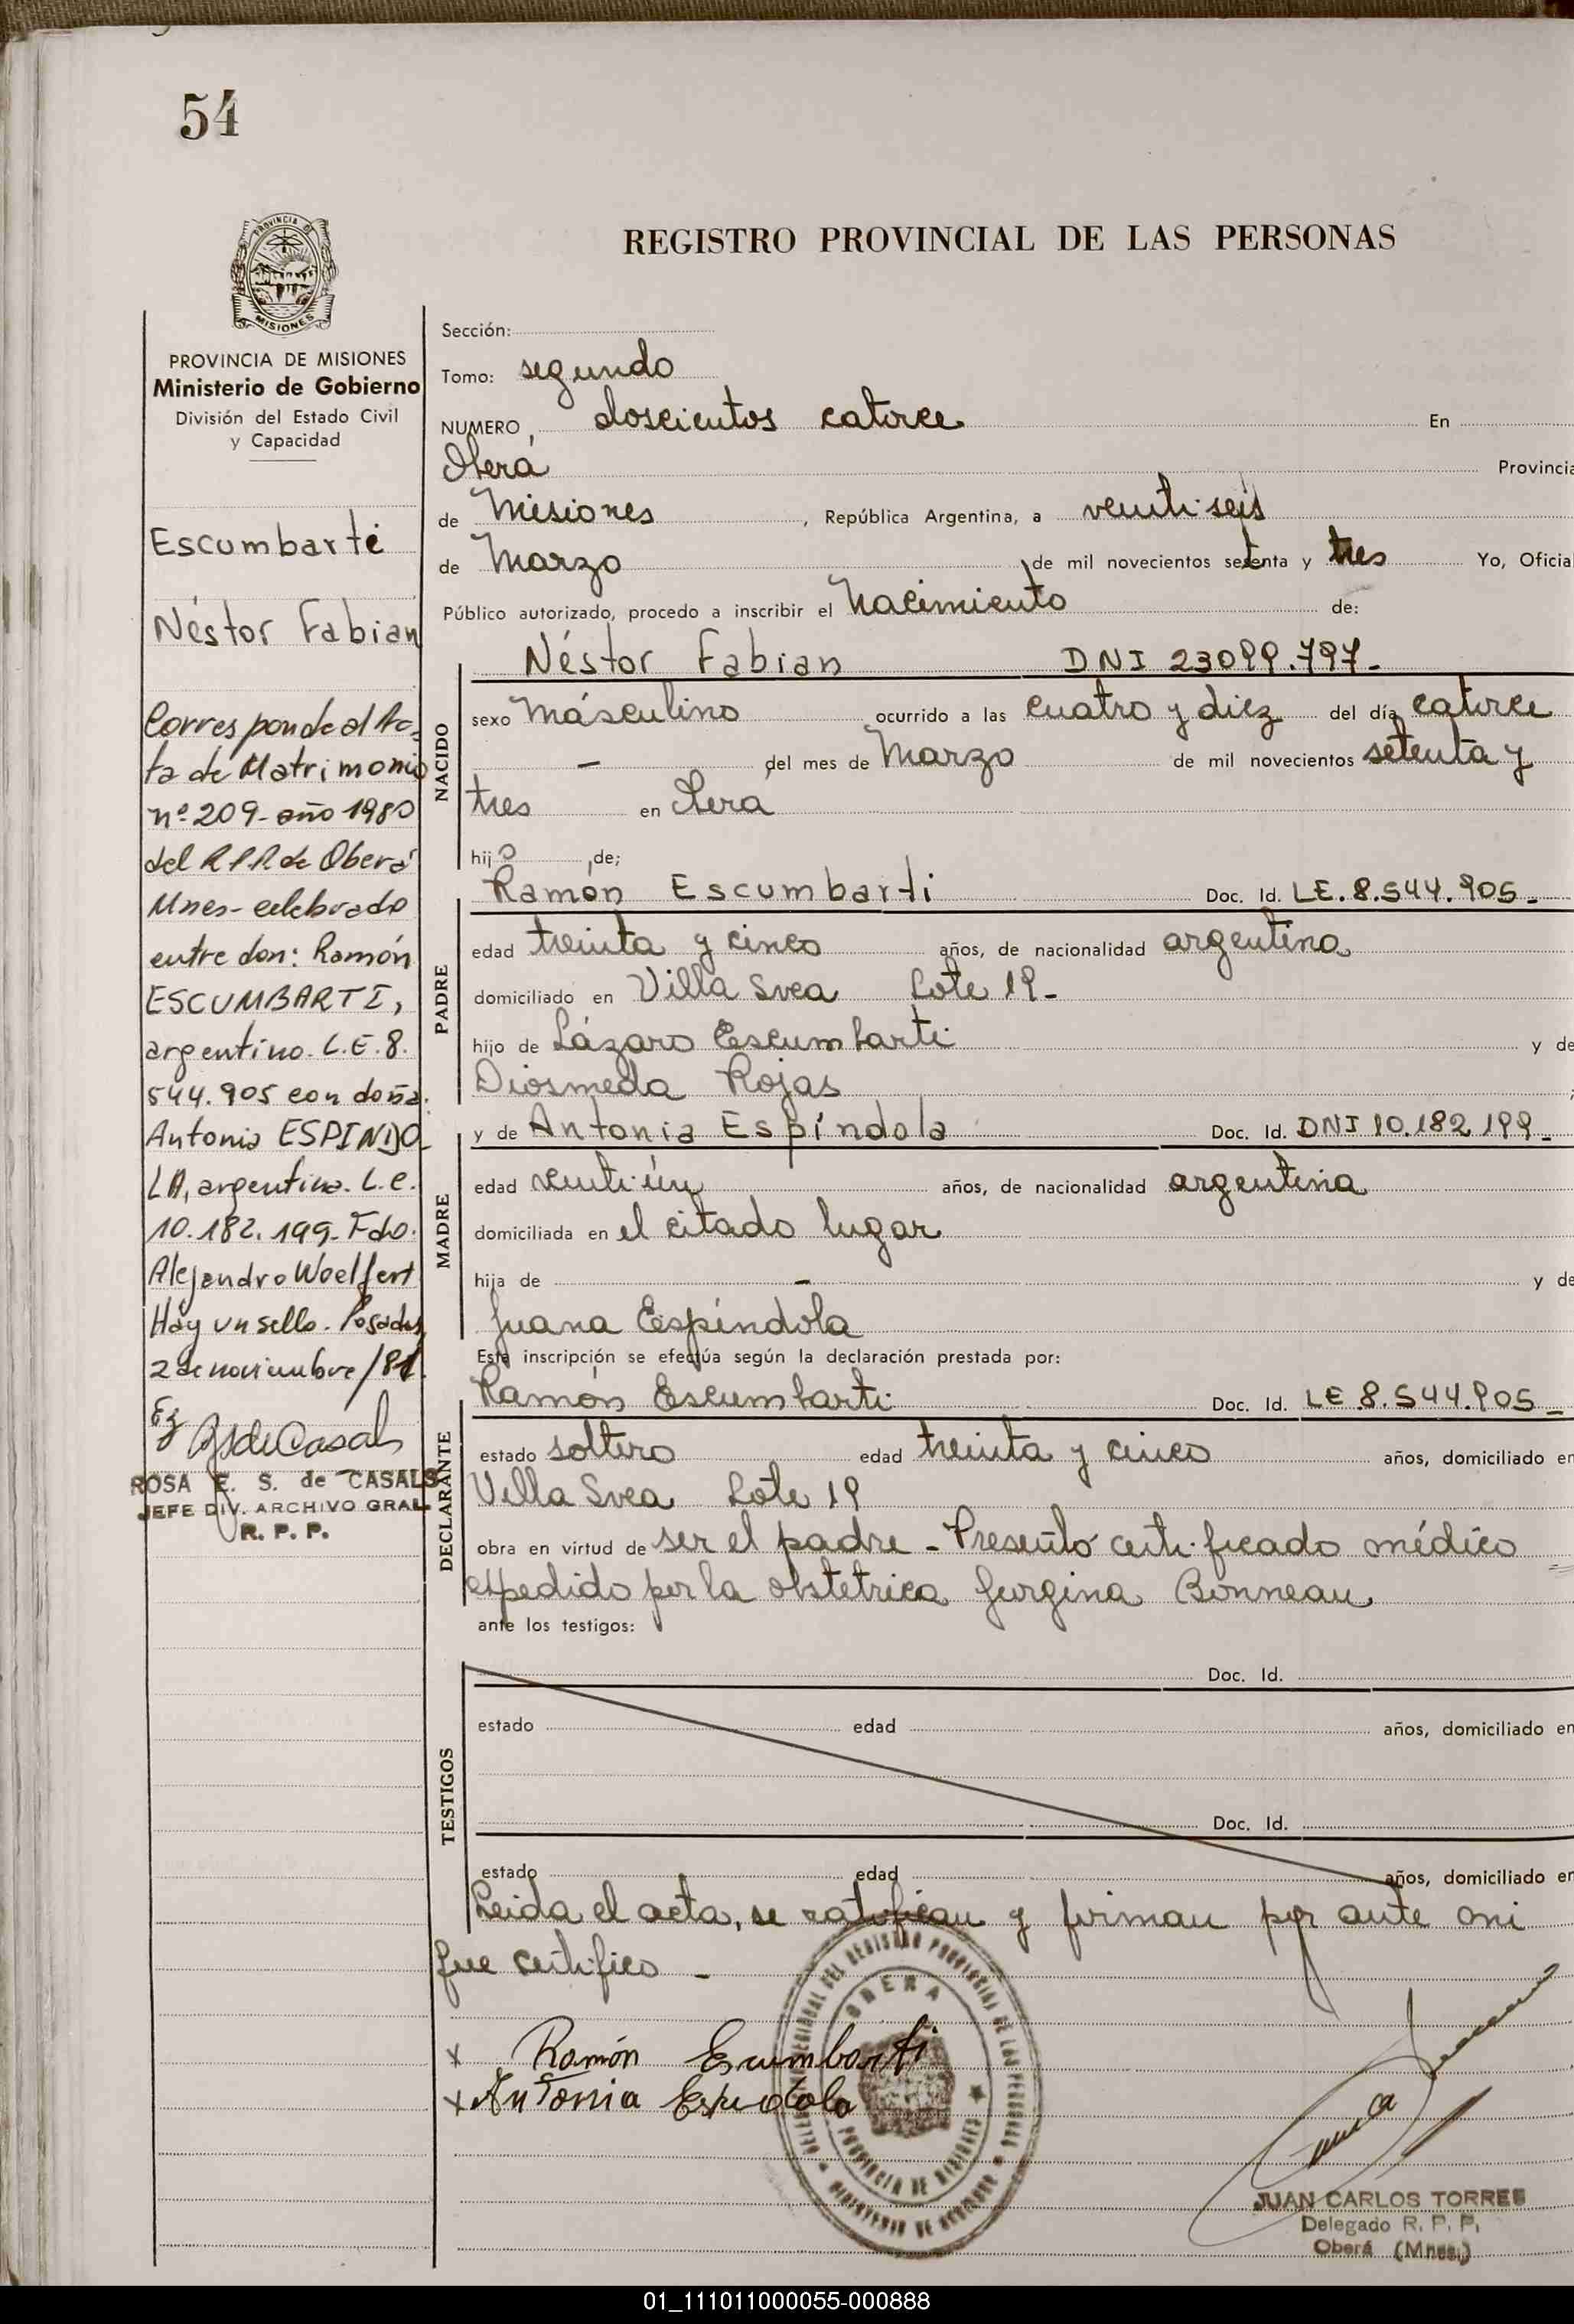 54
PROVINCIA DE
MISIONES
PROVINCIA DE MISIONES
Ministerio de Gobierno
División del Estado Civil
y Capacidad
Escumbarti
Néstor Fabian
Corresponde al Ac-
ta de Matrimonio
nº 209- año 1980
del R.P.P. de Oberá
Mnes- celebrado
entre don: Ramón
ESCUMBARTI,
argentino. L.E. 8.
544.905 con doña
Antonia ESPINDO-
LA, argentina. L.C.
10.182.199- Fdo.
Alejandro Woelfert
Hay un sello. Posadas
2 de noviembre/81.
ROSA E. S. de CASALS
JEFE DIV. ARCHIVO GRAL
R. P. P.
REGISTRO PROVINCIAL DE LAS PERSONAS
Sección:
Tomo: segundo
NUMERO, doscientos catorce En
Oberá Provincia
de Misiones, República Argentina, a veinti seis
de Marzo de mil novecientos setenta y tres Yo, Oficial
Público autorizado, procedo a inscribir el Nacimiento de:
Néstor Fabian DNI 23099.797-
NACIDO
sexo Másculino ocurrido a las cuatro y diez del día catorce
- del mes de Marzo de mil novecientos setenta y
tres en Oberá
hijo, de;
PADRE
Ramón Escumbarti Doc. Id. LE. 8.544.905-
edad treinta y cinco años, de nacionalidad argentina
domiciliado en Villa Svea Lote 19-
hijo de Lázaro Escumbarti y de
Diosmeda Rojas
MADRE
y de Antonia Espíndola Doc. Id. DNI 10.182.199-
edad veinti ún años, de nacionalidad argentina
domiciliada en el citado lugar
hija de - y de
Juana Espíndola
Esta inscripción se efectúa según la declaración prestada por:
DECLARANTE
Ramón Escumbarti Doc. Id. LE 8.544.905-
estado soltero edad treinta y cinco años, domiciliado en
Villa Svea Lote 19
obra en virtud de ser el padre - Presentó certificado médico
expedido por la obstetrica Jorgina Bonneau
ante los testigos:
TESTIGOS
Doc. Id.
estado edad años, domiciliado en
Doc. Id.
estado edad años, domiciliado en
Leida el acta, se ratifican y firman por ante mi
que certifico -
x Ramón Escumbarti
x Antonia Espindola
OBERA
PROVINCIA DE MISIONES
MINISTERIO DE GOBIERNO
JUAN CARLOS TORRES
Delegado R. P. P.
Oberá (Mnes.)
01_111011000055-000888